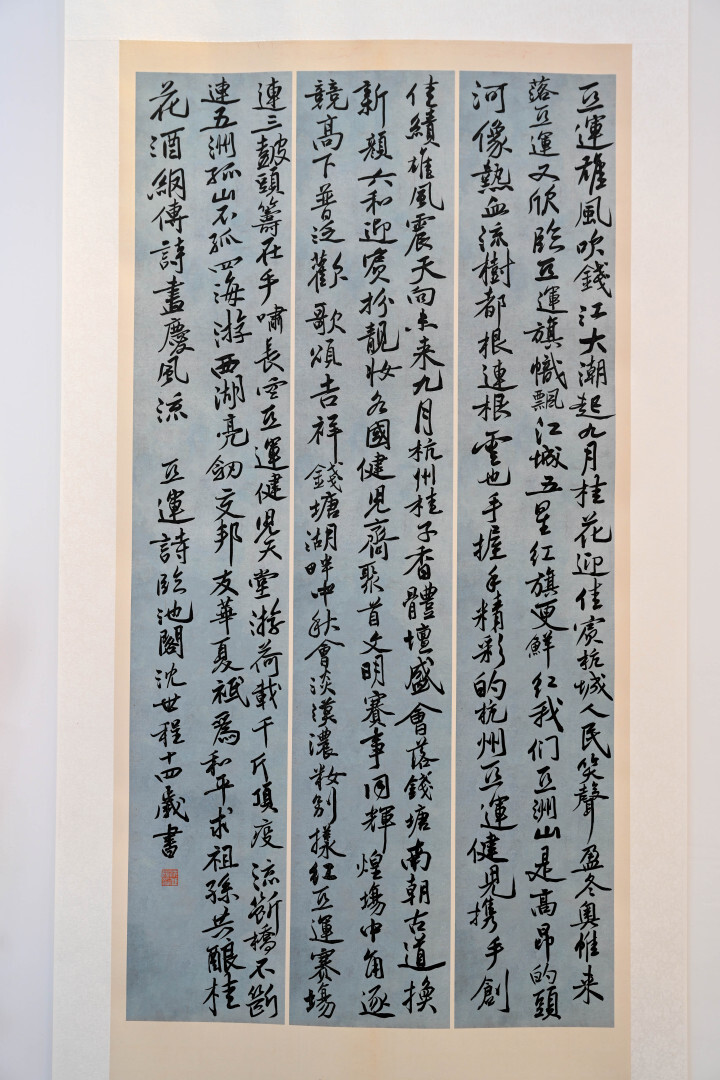 亞運雄風吹錢江大潮起九月桂花迎佳宾杭城人民笑聲盈冬奥帷来
落亞運又欣臨亞運旗幟飄江城五星红旗更鮮红我们亞洲山是高昂的頭
河像熱血流樹都根連根雲也手握手精彩的杭州亞運健児携手創
佳績雄風震天向未来九月杭州桂子香體壇盛會落錢塘南朝古道换
新顔六和迎宾扮靓妆各國健児齊聚首文明賽事同輝煌場中角逐
競高下普泛歡歌頌吉祥錢塘湖畔中秋會淡漢濃妝别樣红亞運賽場
連三鼓頭籌在手嘯長空亞運健児天堂游荷載千斤頂度流斷橋不斷
連五洲孤山不孤四海游西湖亮劍交邦友華夏祗爲和平求祖孫共釀桂
花酒網傳詩畫慶風流 亞運詩臨池閣沈世程十四歲書